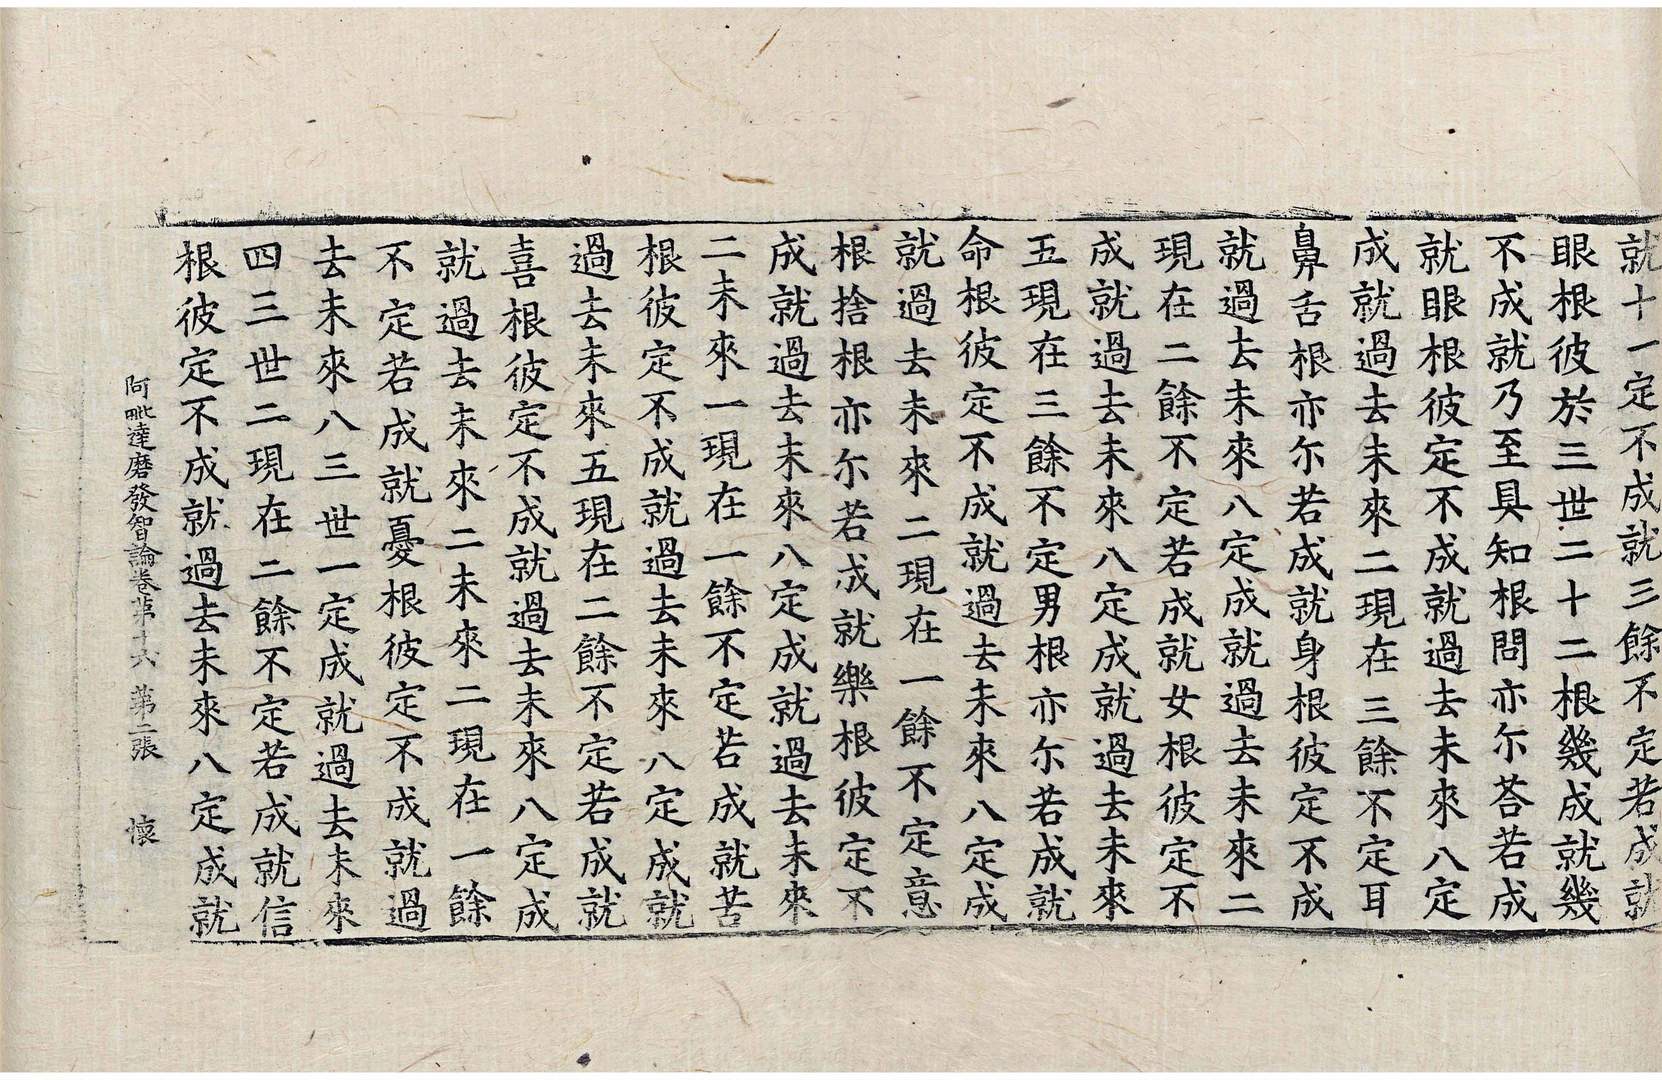 就十一定不成就三餘不定若成就
眼根彼於三世二十二根幾成就幾
不成就乃至具知根問亦尒荅若成
就眼根彼定不成就過去未來八定
成就過去未來二現在三餘不定耳
鼻舌根亦尒若成就身根彼定不成
就過去未來八定成就過去未來二
現在二餘不定若成就女根彼定不
成就過去未來八定成就過去未來
五現在三餘不定男根亦尒若成就
命根彼定不成就過去未來八定成
就過去未來二現在一餘不定意
根捨根亦尒若成就樂根彼定不
成就過去未來八定成就過去未來
二未來一現在一餘不定若成就苦
根彼定不成就過去未來八定成就
過去未來五現在二餘不定若成就
喜根彼定不成就過去未來八定成
就過去未來二未來二現在一餘
不定若成就憂根彼定不成就過
去未來八三世一定成就過去未來
四三世二現在二餘不定若成就信
根彼定不成就過去未來八定成就
阿毗達磨發智論卷第十六 第二張 懷